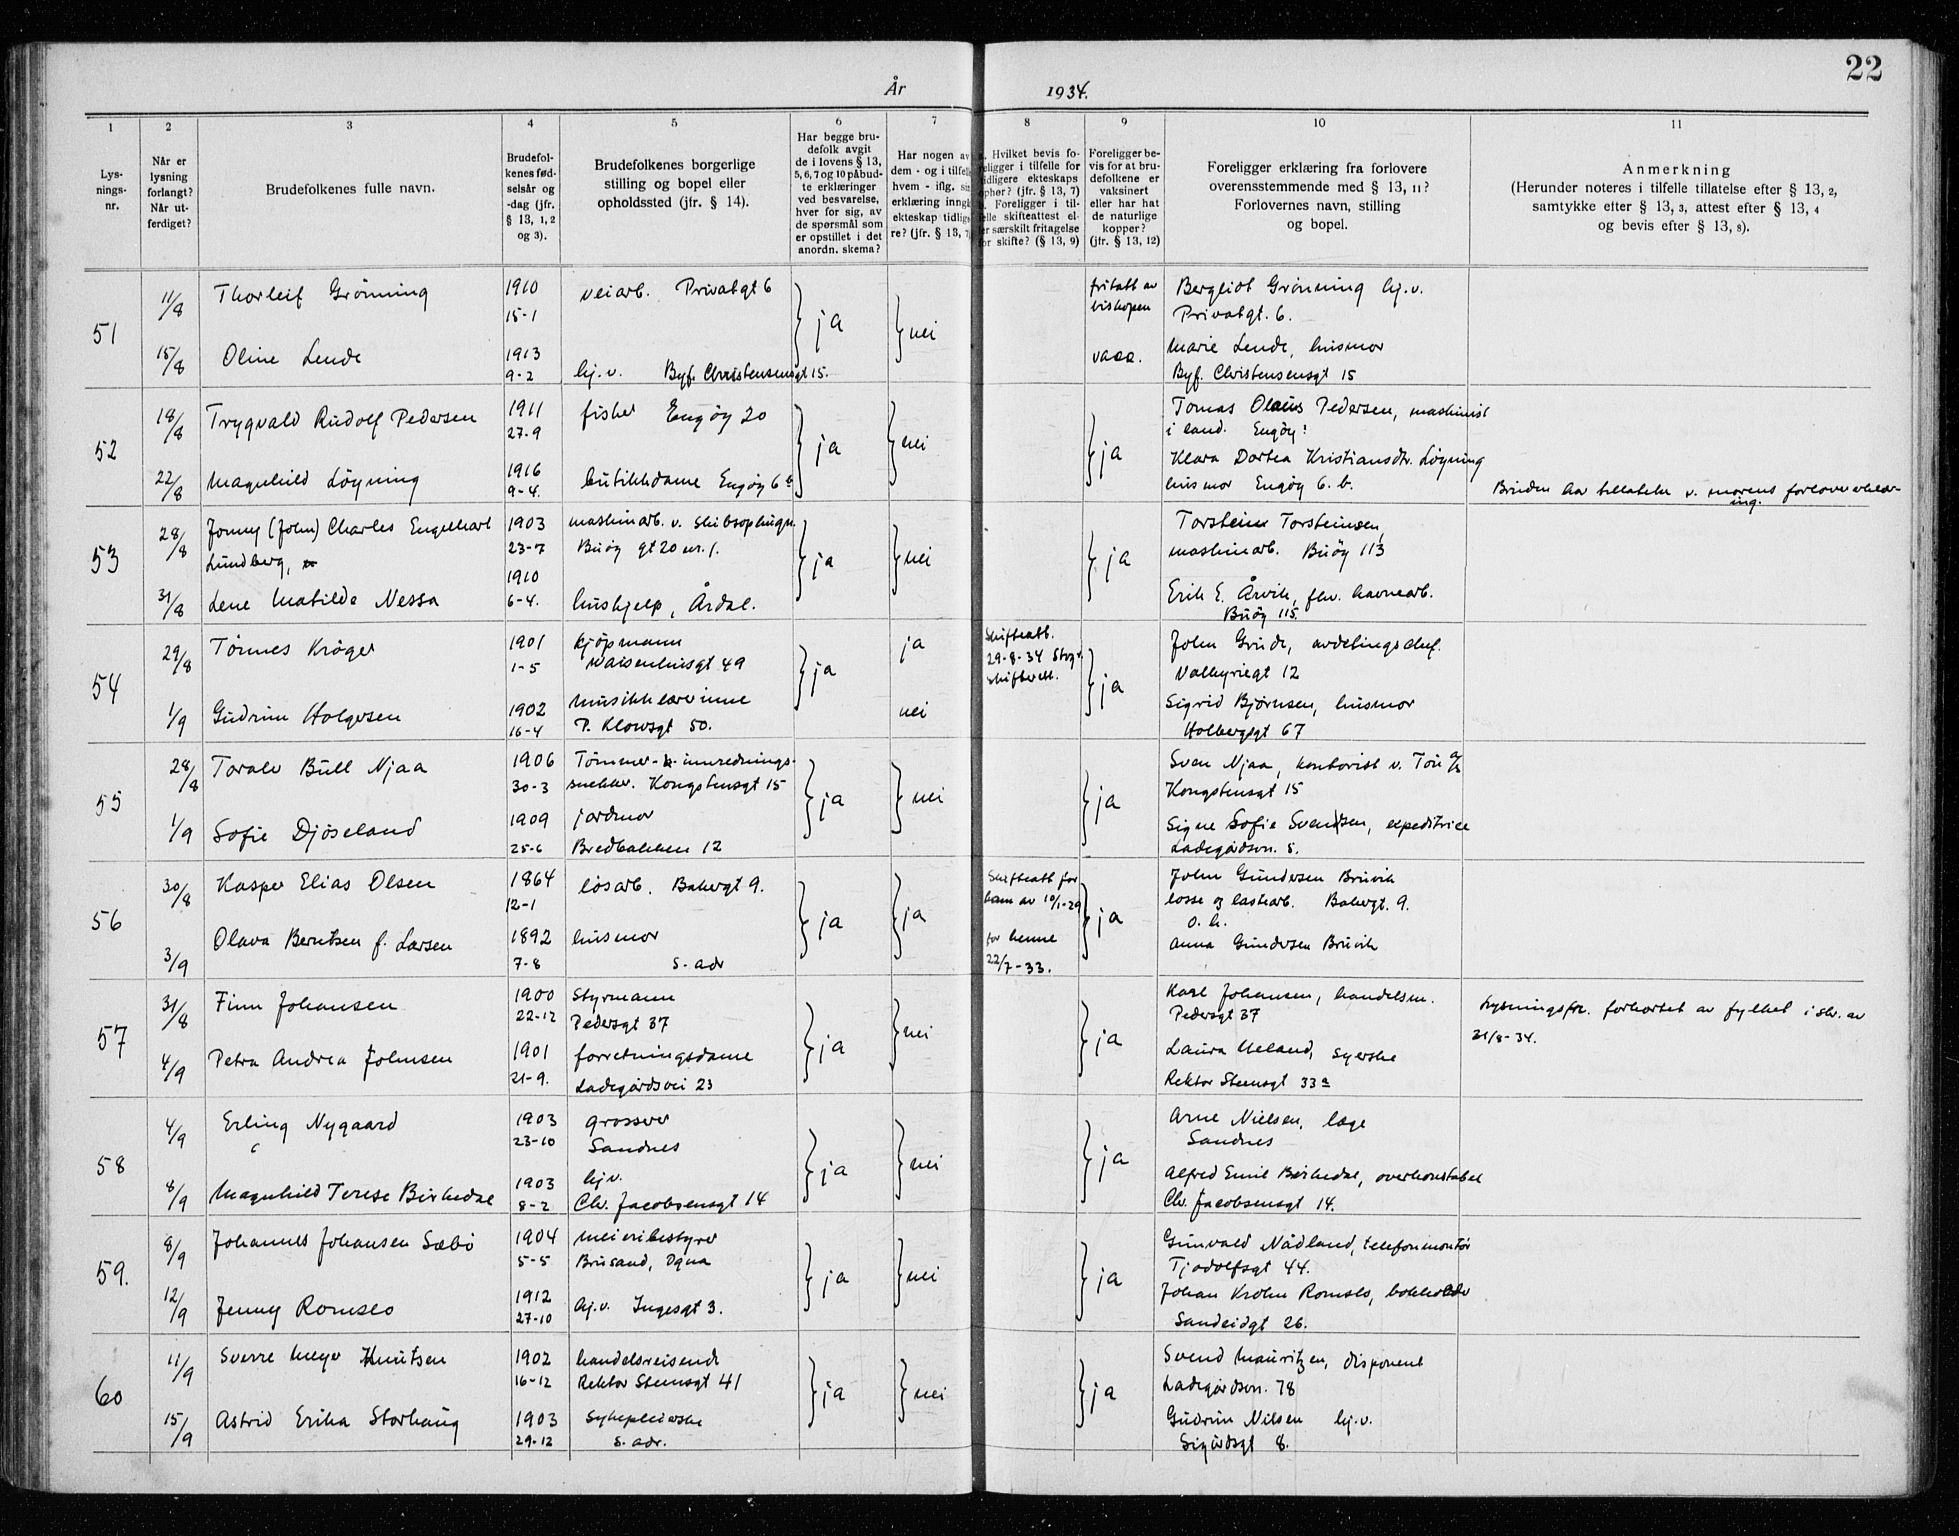 22
År 1934.
1 2 3 4 5 6 7 8 9 10 11
Lys-
nings-
nr.
Når er
lysning
forlangt?
Når ut-
ferdiget?
Brudefolkenes fulle navn.
Brudefol-
kenes fød-
selsår og
-dag (jfr.
§ 13, 1, 2
og 3).
Brudefolkenes borgerlige
stilling og bopel eller
opholdssted (jfr. § 14).
Har begge bru-
defolk avgit
de i lovens § 13,
5, 6, 7 og 10 påbud-
te erklæringer
ved besvarelse,
hver for sig, av
de spørsmål som
er opstillet i det
anordn. skema?
Har nogen av
dem - og i tilfelle
hvem - iflg. sin
erklæring inngå
ekteskap tidlige
re? (jfr. § 13, 7
Hvilket bevis fo-
religger i tilfelle for
tidligere ekteskaps
ophør? (jfr. § 13, 7)
Foreligger i til-
felle skifteattest el-
ler særskilt fritagelse
for skifte? (§ 13, 9)
Foreligger be-
vis for at bru-
defolkene er
vaksinert
eller har hat
de naturlige
kopper?
(jfr. § 13, 12)
Foreligger erklæring fra forlovere
overensstemmende med § 13, 11?
Forlovernes navn, stilling
og bopel.
Anmerkning
(Herunder noteres i tilfelle tillatelse efter § 13, 2,
samtykke efter § 13, 3, attest efter § 13, 4
og bevis efter § 13, 8).
51
11/8 Thorleif Grønning 1910 veiarb. Privatgt 6 fritatt av Bergliot Grønning hj.v.
15-1 ja nei biskopen Privatgt. 6.
15/8 Oline Lende 1913 vacc. Marie Lende, husmor
9-2 hj.v. Byf. Christensensgt 15. Byf. Christensensgt 15
52
18/8 Trygvald Rudolf Pedersen 1911 fisker Engøy 20 Tomas Olaus Pedersen, maskinist
27-9 ja nei ja i land. Engøy
22/8 Magnhild Løyning 1916 butikkdame Engøy 6b Klara Dortea Kristiansdtr. Løyning
9-4. husmor Engøy 6. b. Bruden har tillatelse v. morens forlovererklær-
ing.
53
28/8 Jonny (John) Charles Engelhart 1903 maskinarb. v. Skibsophugn. Torstein Torsteinsen,
Lundberg, 23-7 Buøy gt 20 nr. 1. ja nei ja maskinarb. Buøy 113
1910
31/8 Lene Matilde Nessa 6-4. hushjelp, Årdal. Erik E. Årvik, fhv. havnearb.
Buøy 115.
54
29/8 Tønnes Krøger 1901 kjøpmann ja Skifteatt. John Grude, avdelingschef.
1-5 Waisenhusgt 49 ja 29-8-34 Stvgr. ja Valkyriegt 12
skifterett.
1/9 Gudrun Holgersen 1902 musikklærerinne nei Sigrid Bjørnsen, husmor
16-4 P. Klowsgt 50. Holbergsgt 67
55
28/8 Toralv Bull Njaa 1906 Tømmer- innrednings- Sven Njaa, kontorist v. Tou
30-3 snekker. Kongstensgt 15 ja nei ja Kongstensgt 15
1/9 Sofie Djøseland 1909 jordmor Signe Sofie Svendsen, expeditrice
25-6 Bredbakken 12 Ladegårdsv. 5.
56
30/8 Kasper Elias Olsen 1864 løsarb. Bakergt 9. Skifteatt for John Gundersen Bruvik
12-1 ja ja ham av 10/1-29 ja losse og lastearb. Bakergt. 9.
o. h.
Olava Berntsen f. Larsen 1892 husmor for henne Anna Gundersen Bruvik
3/9 7-8 s. adr 22/7-33.
57
31/8 Finn Johansen 1900 Styrmann Karl Johansen, handelsm. Lysningsfr. forkortet av fylket i skr. av
22-12 Pedersgt 37 ja nei ja Pedersgt 37 31/8-34.
4/9 Petra Andrea Johnsen 1901 forretningsdame Laura Ueland, syerske
21-9. Ladegårdsvei 23 Rektor Steensgt 33a
58
4/9 Erling Nygaard 1903 grosser Arne Nielsen, læge
23-10 Sandnes ja nei ja Sandnes
8/9 Magnhild Terese Birkedal 1903 hj.v. Alfred Emil Birkedal, overkonstabel
8-2 Chr. Jacobsensgt 14 Chr. Jacobsensgt 14.
59.
8/9 Johannes Johansen Sæbø 1904 meieribestyrer Gunvald Nådland, telefonmontør
5-5 Brusand, Ogna ja nei ja Tjodolfsgt 44.
12/9 Jenny Romslo 1912 hj.v. Ingesgt 3. Johan Krohn Romslo, bokholder
27-10 Sandeidgt 26.
60
11/9 Sverre Meyer Knutsen 1902 handelsreisende Svend Mauritzen, disponent
16-12 Rektor Steensgt 41 ja nei ja Ladegårdsv. 78
15/9 Astrid Erika Storhaug 1903 Sykepleierske Gudrun Nilsen hj.v.
29-12 s. adr. Sigurdsgt 8.